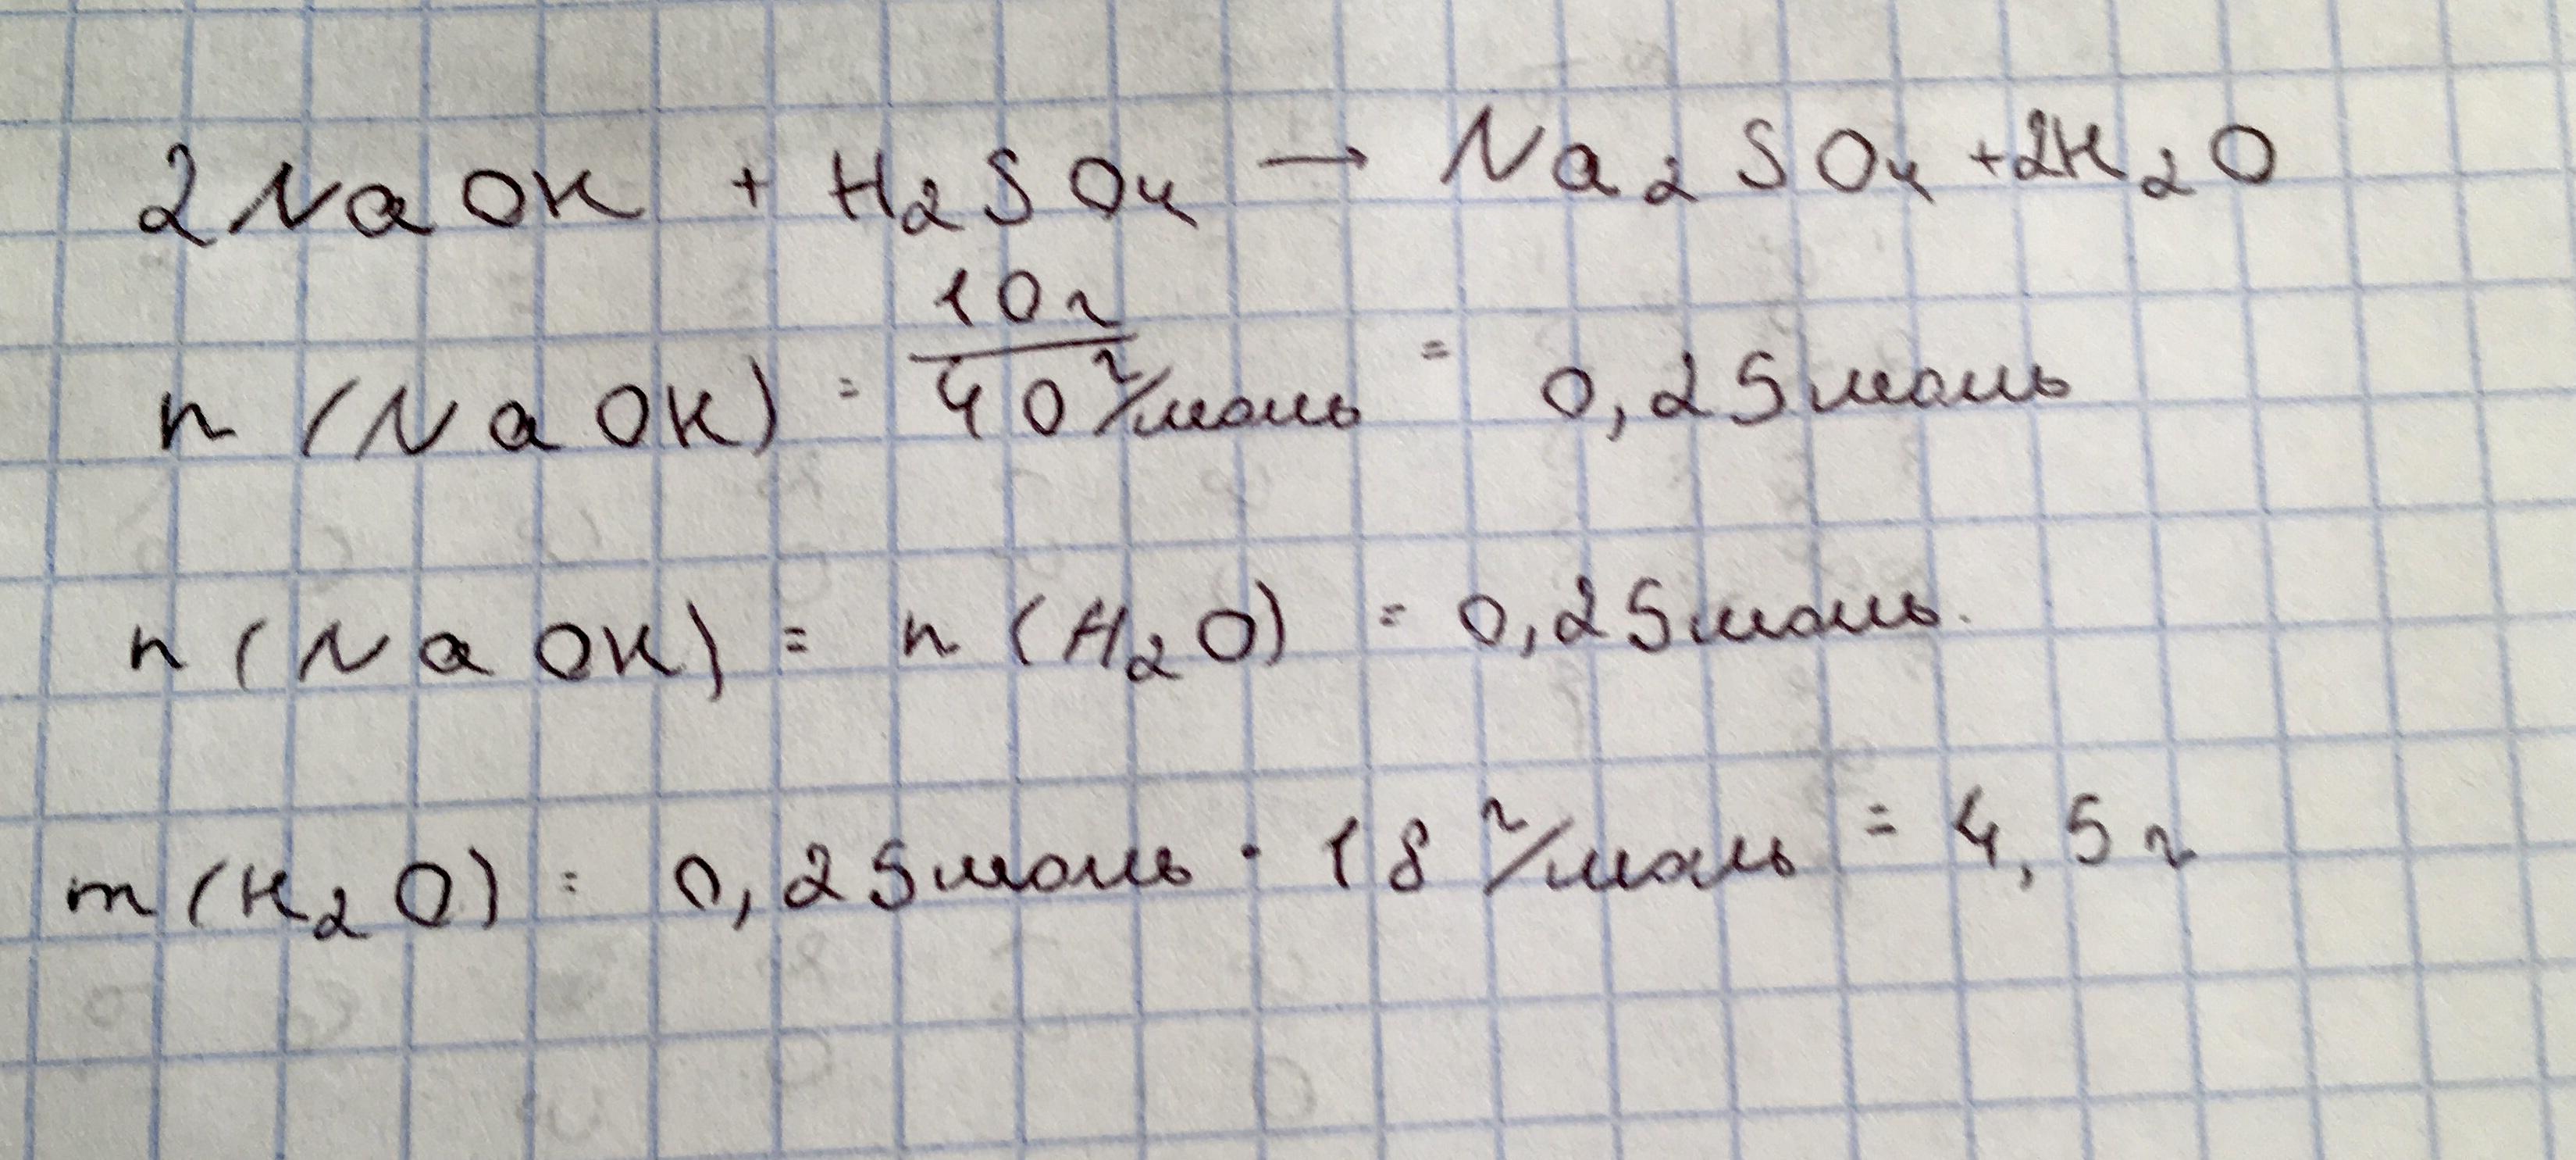 2NaOH + H₂SO₄ → Na₂SO₄ + 2H₂O
n (NaOH) = 10г / 40 г/моль = 0,25 моль
n (NaOH) = n (H₂O) = 0,25 моль.
m (H₂O) = 0,25 моль · 18 г/моль = 4,5 г